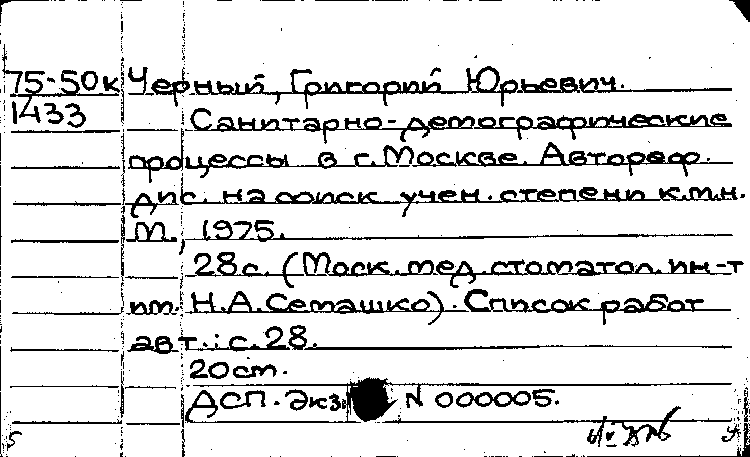 75-50к Черный, Григорий Юрьевич.
1433 Санитарно-демографические
процессы в г. Москве. Автореф.
дис. на соиск учен. степени к.м.н.
М., 1975.
28с. (Моск. мед. стоматол. ин-т
им. Н.А. Семашко). Список работ
авт.: с. 28.
20см.
ДСП. Экз. N 000005.